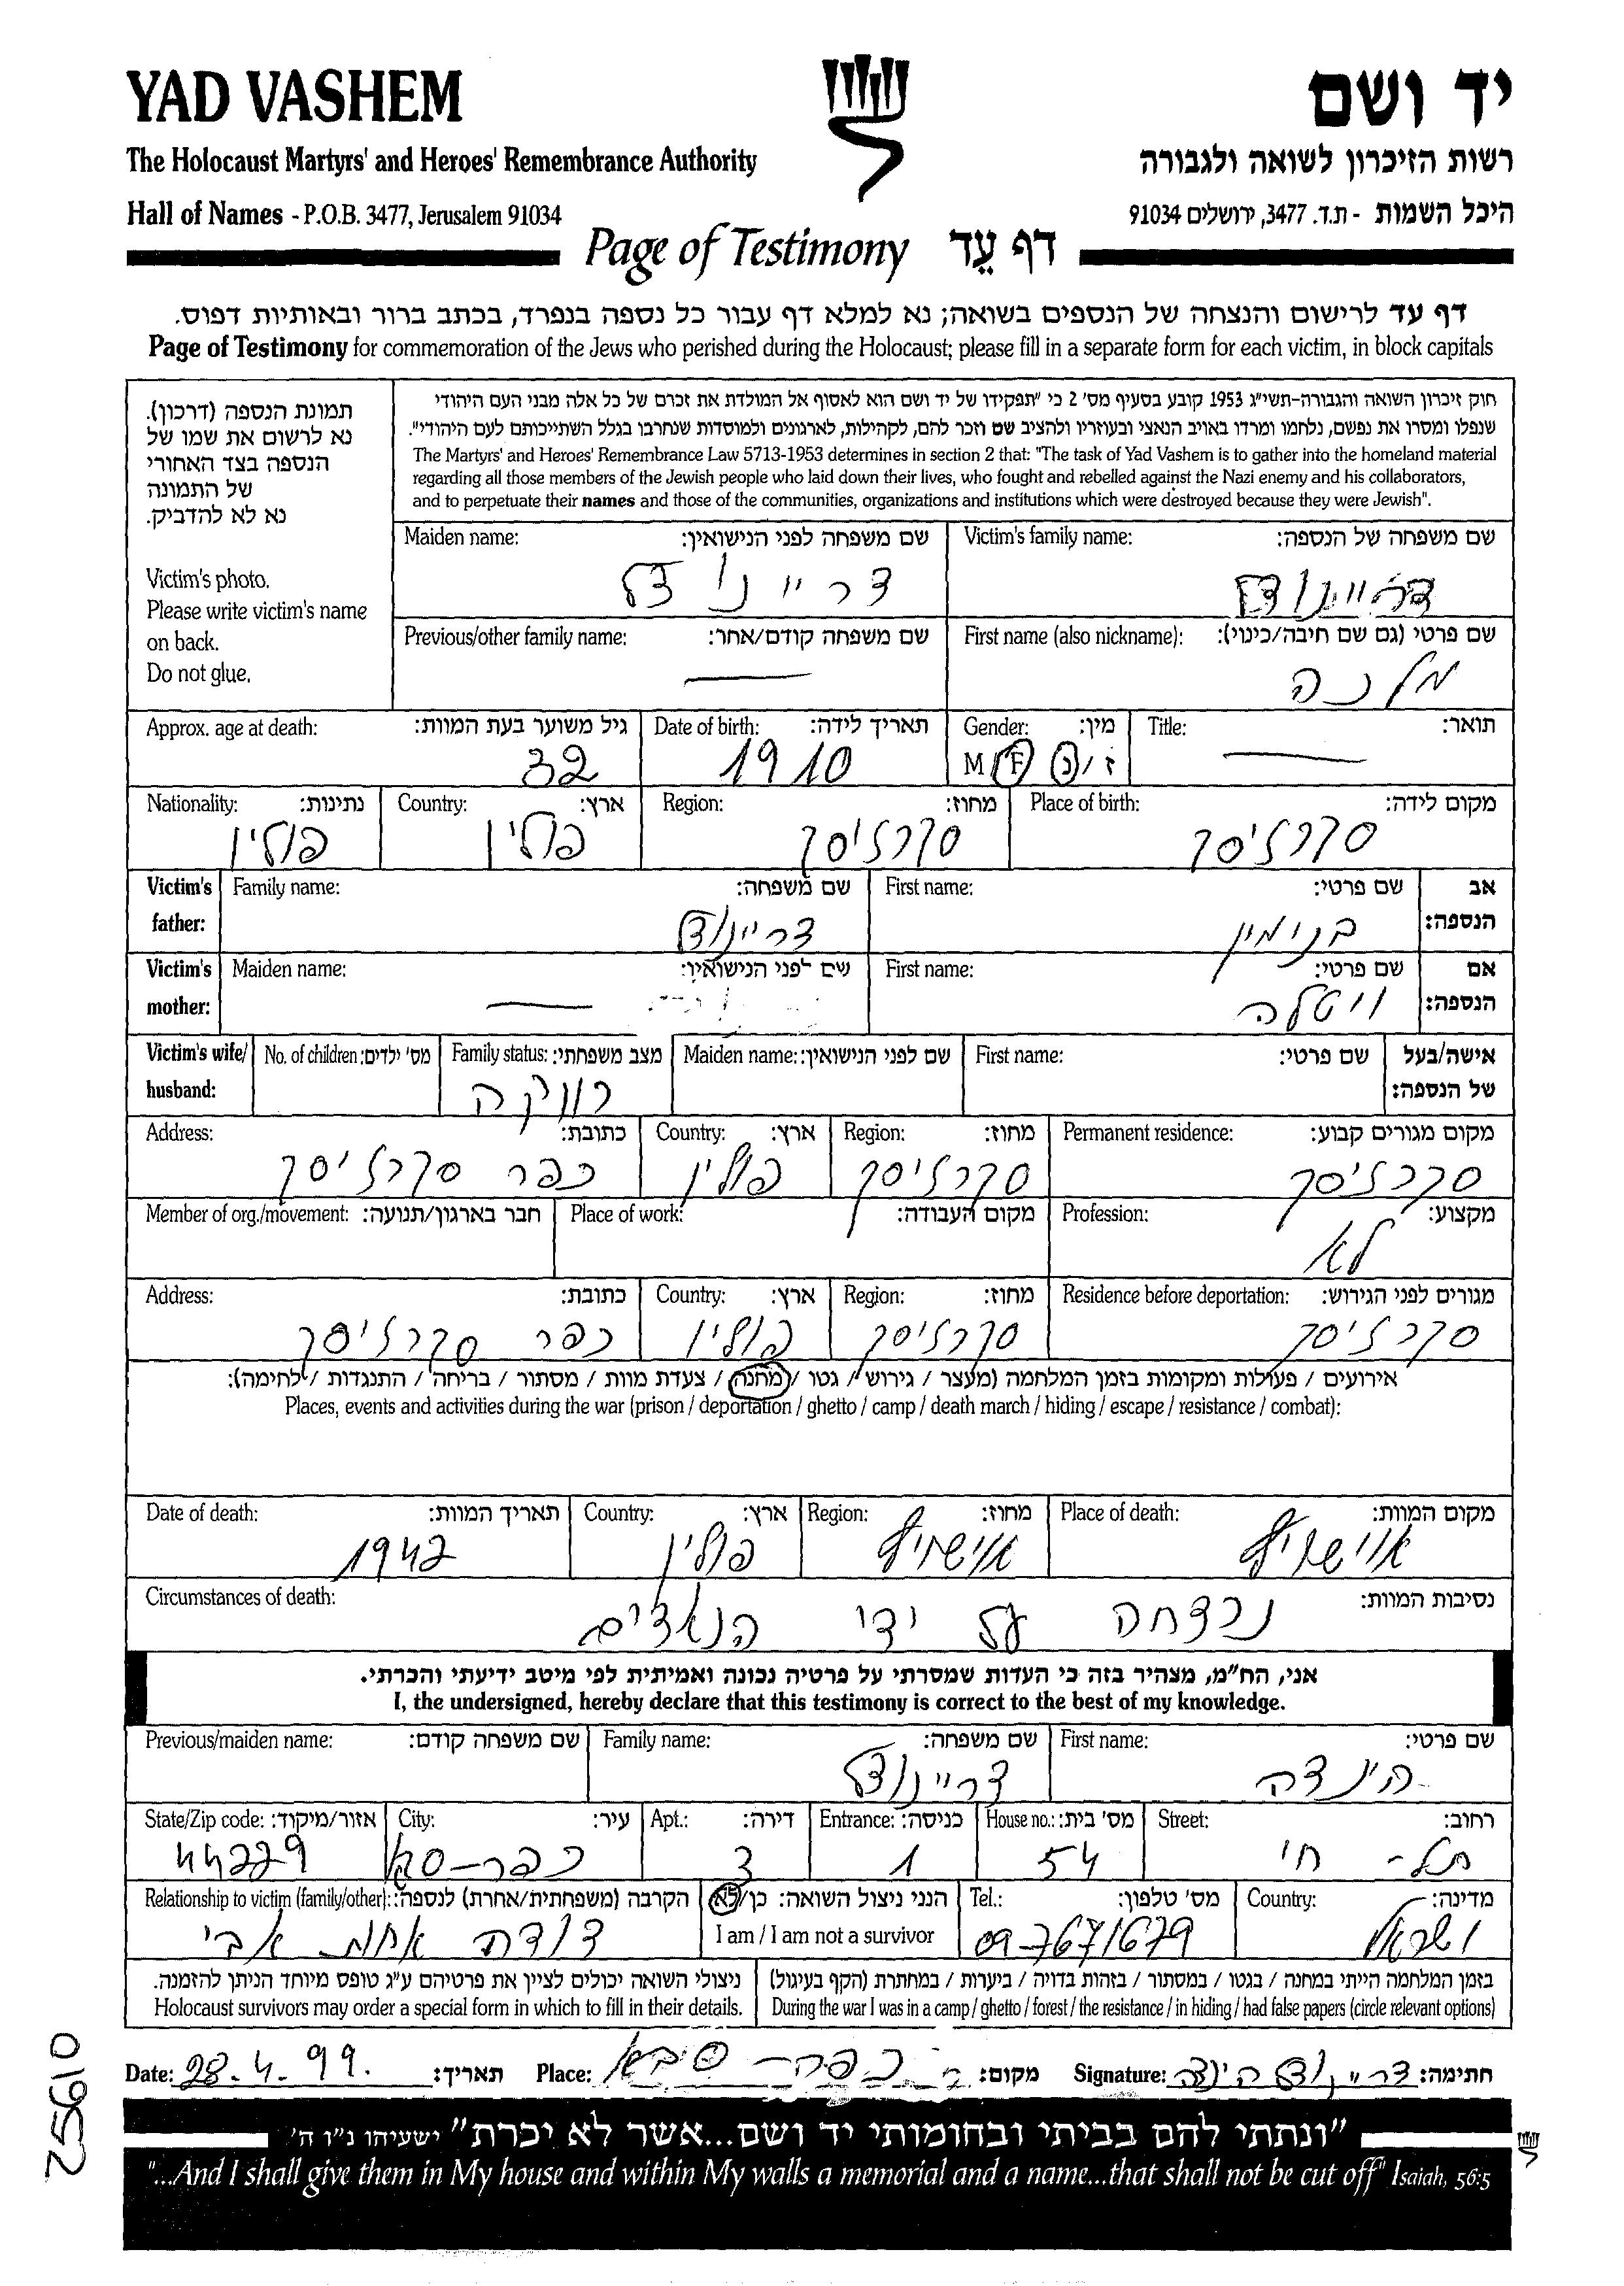 YAD VASHEM
יד ושם
The Holocaust Martyrs' and Heroes' Remembrance Authority
רשות הזיכרון לשואה ולגבורה
Hall of Names - P.O.B. 3477, Jerusalem 91034
היכל השמות - ת.ד. 3477, ירושלים 91034
Page of Testimony דף עֵד
דף עד לרישום והנצחה של הנספים בשואה; נא למלא דף עבור כל נספה בנפרד, בכתב ברור ובאותיות דפוס.
Page of Testimony for commemoration of the Jews who perished during the Holocaust; please fill in a separate form for each victim, in block capitals
תמונת הנספה (דרכון).
נא לרשום את שמו של
הנספה בצד האחורי
של התמונה
נא לא להדביק.
Victim's photo.
Please write victim's name
on back.
Do not glue.
חוק זיכרון השואה והגבורה-תשי"ג 1953 קובע בסעיף מס' 2 כי "תפקידו של יד ושם הוא לאסוף אל המולדת את זכרם של כל אלה מבני העם היהודי
שנפלו ומסרו את נפשם, נלחמו ומרדו באויב הנאצי ובעוזריו ולהציב שם וזכר להם, לקהילות, לארגונים ולמוסדות שנחרבו בגלל השתייכותם לעם היהודי".
The Martyrs' and Heroes' Remembrance Law 5713-1953 determines in section 2 that: "The task of Yad Vashem is to gather into the homeland material
regarding all those members of the Jewish people who laid down their lives, who fought and rebelled against the Nazi enemy and his collaborators,
and to perpetuate their names and those of the communities, organizations and institutions which were destroyed because they were Jewish".
Victim's family name: שם משפחה של הנספה:
דריינודל
Maiden name: שם משפחה לפני הנישואין:
דריינודל
First name (also nickname): שם פרטי (גם שם חיבה/כינוי):
מלכה
Previous/other family name: שם משפחה קודם/אחר:
—
Title: תואר:
—
Gender: מין:
M F ז/נ
Date of birth: תאריך לידה:
1910
Approx. age at death: גיל משוער בעת המוות:
32
Place of birth: מקום לידה:
סקרז'יסק
Region: מחוז:
סקרז'יסק
Country: ארץ:
פולין
Nationality: נתינות:
פולין
Victim's father: אב הנספה:
First name: שם פרטי:
בנימין
Family name: שם משפחה:
Victim's mother: אם הנספה:
First name: שם פרטי:
ויטלה
Maiden name: שם לפני הנישואין:
—
Victim's wife/ husband: אישה/בעל של הנספה:
First name: שם פרטי:
Maiden name: שם לפני הנישואין:
Family status: מצב משפחתי:
רווקה
No. of children: מס' ילדים:
Permanent residence: מקום מגורים קבוע:
סקרז'יסק
Region: מחוז:
סקרז'יסק
Country: ארץ:
פולין
Address: כתובת:
כפר סקרז'יסק
Profession: מקצוע:
לא
Place of work: מקום העבודה:
Member of org./movement: חבר בארגון/תנועה:
Residence before deportation: מגורים לפני הגירוש:
סקרז'יסק
Region: מחוז:
סקרז'יסק
Country: ארץ:
פולין
Address: כתובת:
כפר סקרז'יסק
אירועים / פעולות ומקומות בזמן המלחמה (מעצר / גירוש / גטו / מחנה / צעדת מוות / מסתור / בריחה / התנגדות / לחימה):
Places, events and activities during the war (prison / deportation / ghetto / camp / death march / hiding / escape / resistance / combat):
Place of death: מקום המוות:
אוישויץ
Region: מחוז:
אוישויץ
Country: ארץ:
פולין
Date of death: תאריך המוות:
1942
Circumstances of death: נסיבות המוות:
נרצחה על ידי הנאצים
אני, הח"מ, מצהיר בזה כי העדות שמסרתי על פרטיה נכונה ואמיתית לפי מיטב ידיעתי והכרתי.
I, the undersigned, hereby declare that this testimony is correct to the best of my knowledge.
First name: שם פרטי:
הינדה
Family name: שם משפחה:
דריינודל
Previous/maiden name: שם משפחה קודם:
Street: רחוב:
תל-חי
House no.: מס' בית:
54
Entrance: כניסה:
1
Apt.: דירה:
3
City: עיר:
כפר-סבא
State/Zip code: אזור/מיקוד:
44229
Country: מדינה:
ישראל
Tel.: מס' טלפון:
09-7671679
הנני ניצול השואה: כן/לא
I am / I am not a survivor
Relationship to victim (family/other): הקרבה (משפחתית/אחרת) לנספה:
דודה אחות אבי
בזמן המלחמה הייתי במחנה / בגטו / במסתור / בזהות בדויה / ביערות / במחתרת (הקף בעיגול)
During the war I was in a camp / ghetto / forest / the resistance / in hiding / had false papers (circle relevant options)
ניצולי השואה יכולים לציין את פרטיהם ע"ג טופס מיוחד הניתן להזמנה.
Holocaust survivors may order a special form in which to fill in their details.
Date: 28.4.99. תאריך: Place: כפר-סבא מקום: Signature: דריינודל הינדה חתימה:
"ונתתי להם בביתי ובחומותי יד ושם...אשר לא יכרת" ישעיהו נ"ו ה'
"...And I shall give them in My house and within My walls a memorial and a name...that shall not be cut off" Isaiah, 56:5
25910